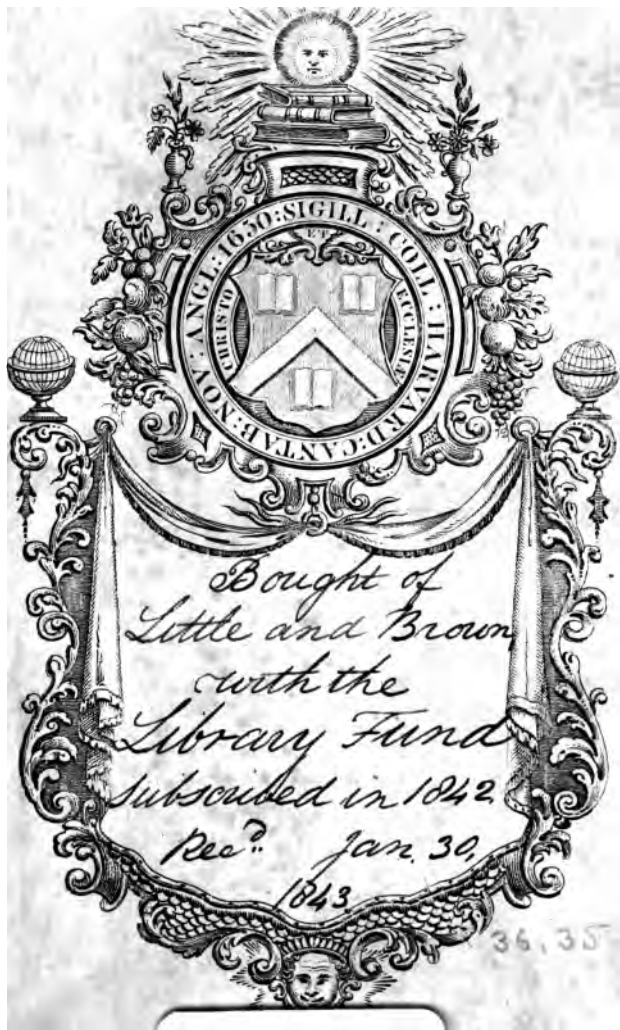 SIGILL : COLL : HARVARD : CANTAB : NOV : ANGL : 1650 :
CHRISTO
ET
ECCLESIÆ
Bought of
Little and Brown,
with the
Library Fund
subscribed in 1842
Rec.d Jan. 30,
1843
36,35